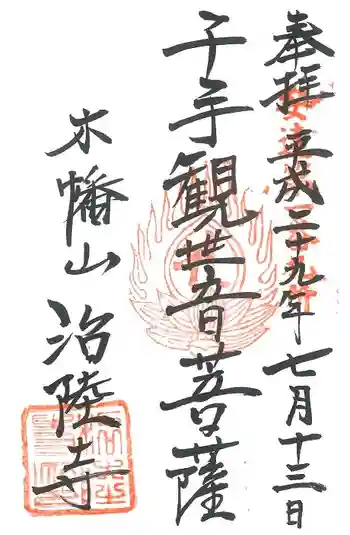 奉拝 平成二十九年七月十三日
千手観世音菩薩
木幡山 治陸寺